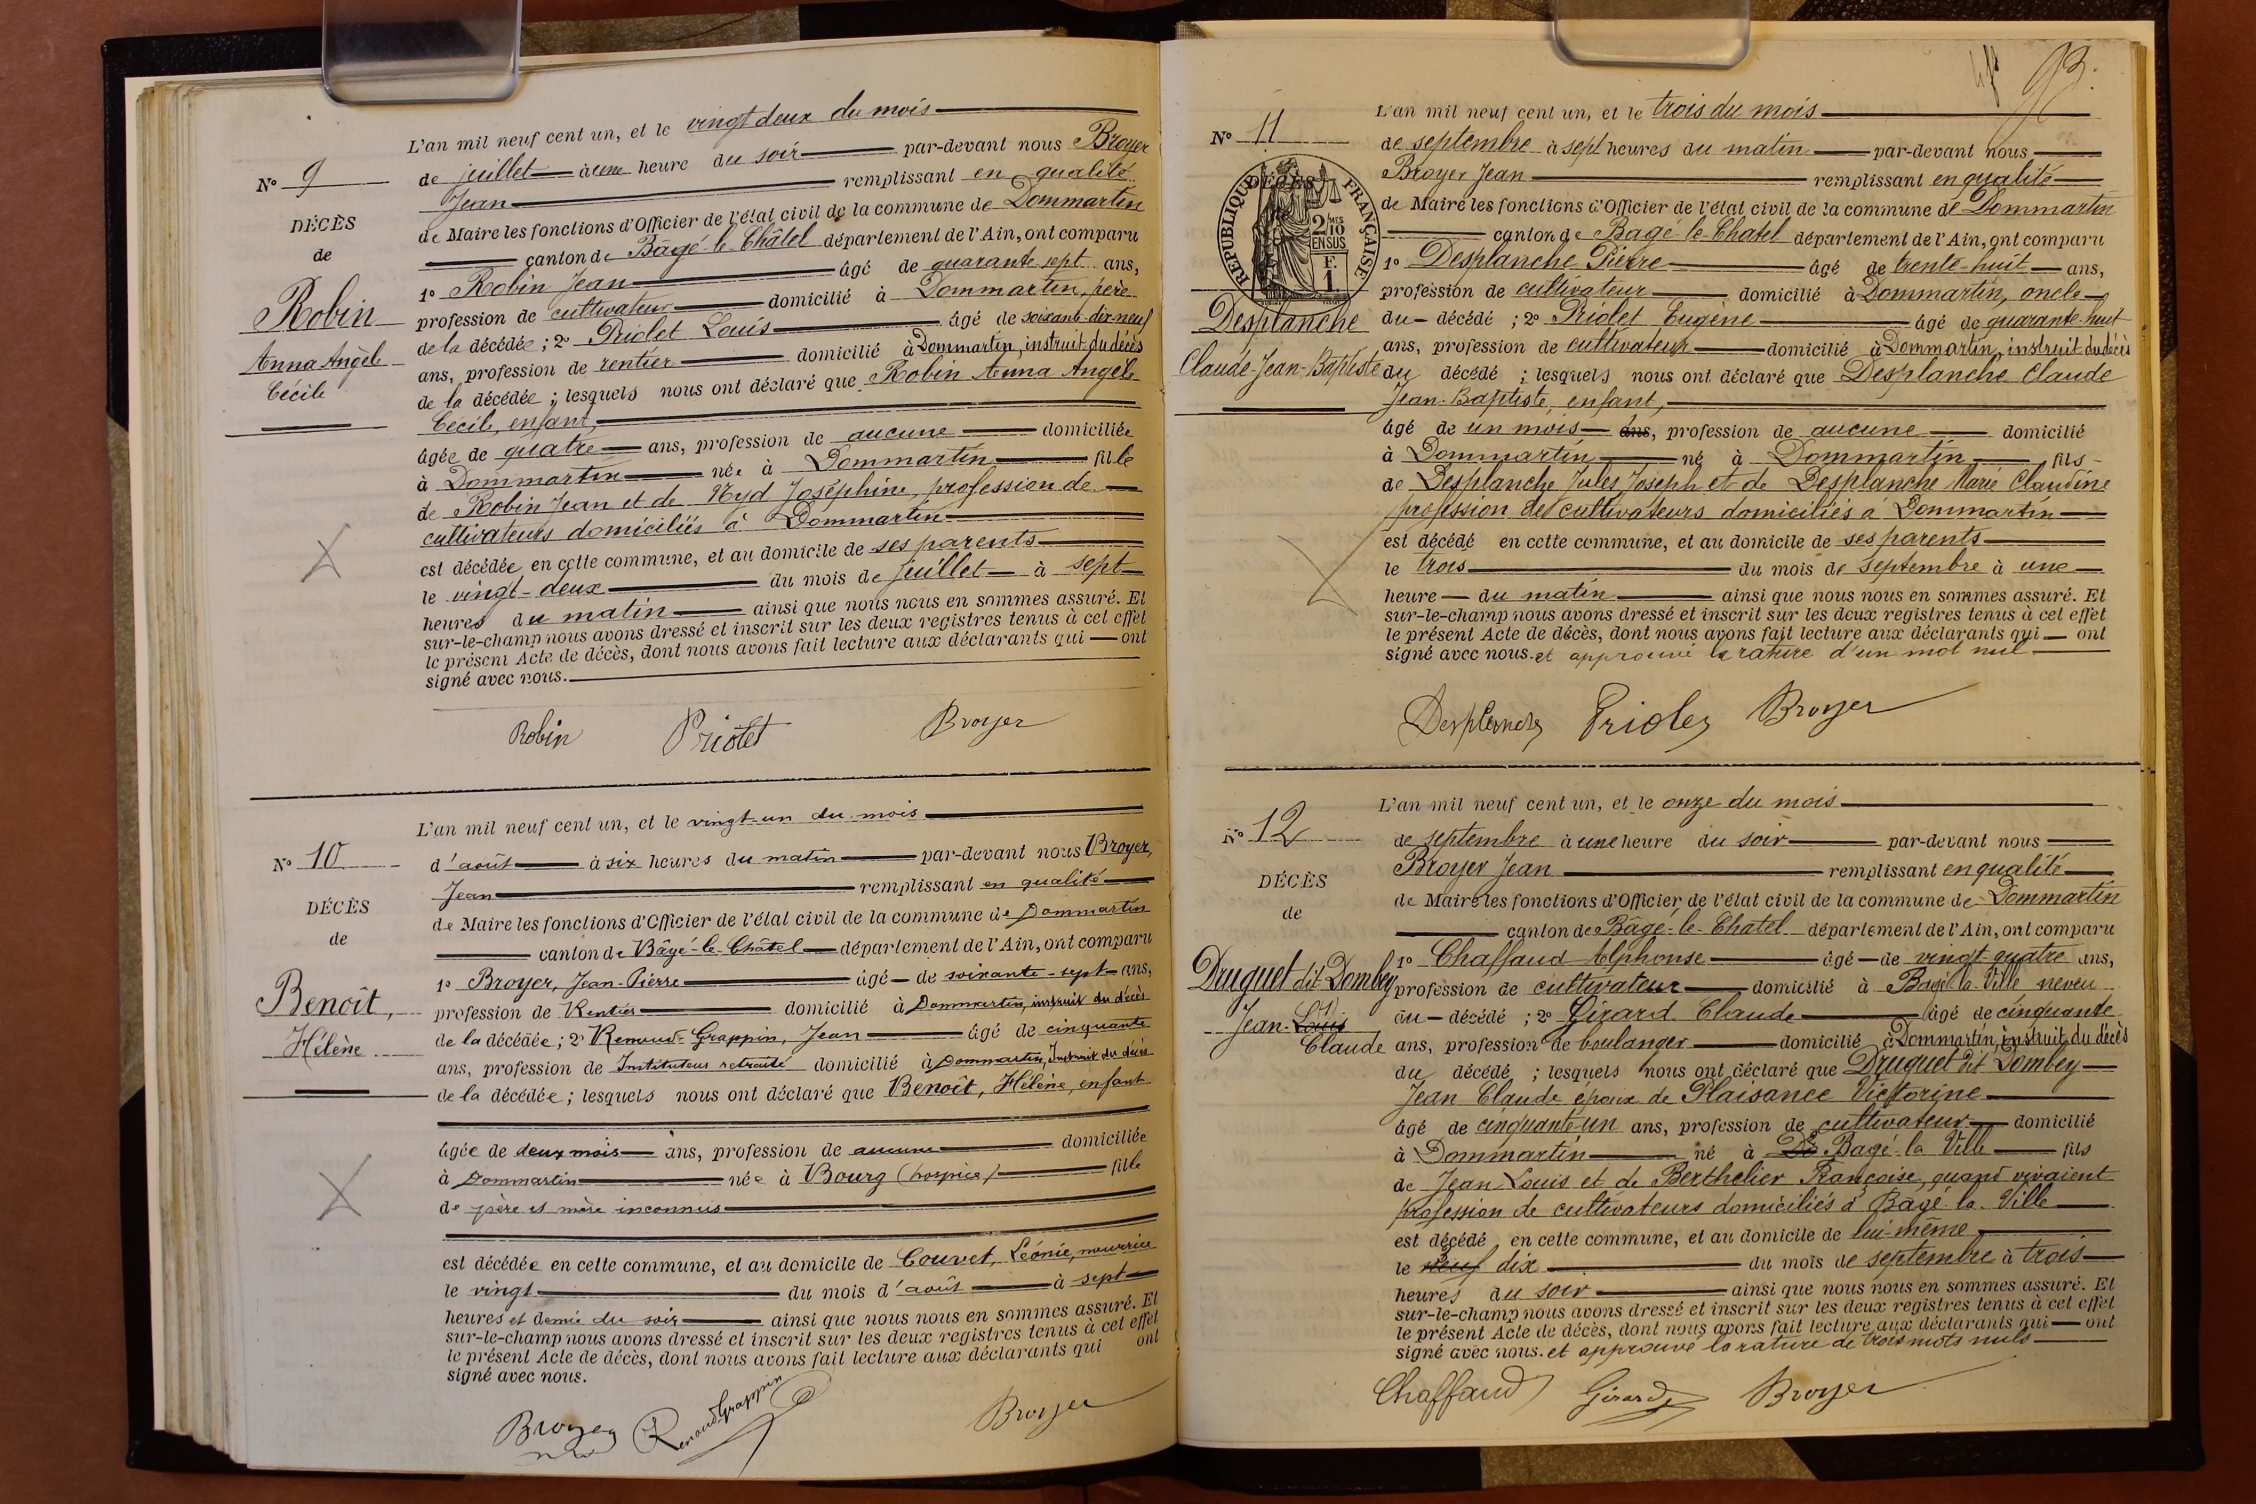 L'an mil neuf cent un, et le vingt deux du mois
N° 9
de juillet à une heure du soir par-devant nous Broyer
Jean remplissant en qualité
DÉCÈS
de Maire les fonctions d'Officier de l'état civil de la commune de Dommartin
de
canton de Bâgé-le-Châtel département de l'Ain, ont comparu
1° Robin Jean âgé de quarante sept ans,
Robin
profession de cultivateur domicilié à Dommartin, père
de la décédée ; 2° Priolet Louis âgé de soixante-dix-neuf
Anna Angèle
ans, profession de rentier domicilié à Dommartin, instruit du décès
Cécile
de la décédée ; lesquels nous ont déclaré que Robin Anna Angèle
Cécile, enfant,
âgée de quatre ans, profession de aucune domiciliée
à Dommartin née à Dommartin fille
de Robin Jean et de Nyd Joséphine, profession de
cultivateurs domiciliés à Dommartin
est décédée en cette commune, et au domicile de ses parents
le vingt-deux du mois de juillet à sept
heures du matin ainsi que nous nous en sommes assuré. Et
sur-le-champ nous avons dressé et inscrit sur les deux registres tenus à cet effet
le présent Acte de décès, dont nous avons fait lecture aux déclarants qui ont
signé avec nous.
Robin Priolet Broyer
L'an mil neuf cent un, et le vingt-un du mois
N° 10
d'août à six heures du matin par-devant nous Broyer,
Jean remplissant en qualité
DÉCÈS
de Maire les fonctions d'Officier de l'état civil de la commune de Dommartin
de
canton de Bâgé-le-Châtel département de l'Ain, ont comparu
1° Broyer, Jean-Pierre âgé de soixante-sept ans,
Benoît,
profession de Rentier domicilié à Dommartin, instruit du décès
de la décédée ; 2° Renoud-Grappin, Jean âgé de cinquante
Hélène
ans, profession de Instituteur retraité domicilié à Dommartin, Instruit du décès
de la décédée ; lesquels nous ont déclaré que Benoît, Hélène, enfant
âgée de deux mois ans, profession de aucune domiciliée
à Dommartin née à Bourg (hospice) fille
de père et mère inconnus
est décédée en cette commune, et au domicile de Couvet, Léonie, nourrice
le vingt du mois d'août à sept
heures et demie du soir ainsi que nous nous en sommes assuré. Et
sur-le-champ nous avons dressé et inscrit sur les deux registres tenus à cet effet
le présent Acte de décès, dont nous avons fait lecture aux déclarants qui ont
signé avec nous.
Broyer RenoudGrappin Broyer
93.
L'an mil neuf cent un, et le trois du mois
N° 11
de septembre à sept heures du matin par-devant nous
Broyer Jean remplissant en qualité
DÉCÈS
RÉPUBLIQUE FRANÇAISE
2/10 MES EN SUS
F. 1
de Maire les fonctions d'Officier de l'état civil de la commune de Dommartin
canton de Bagé-le-Chatel département de l'Ain, ont comparu
1° Desplanche Pierre âgé de trente-huit ans,
profession de cultivateur domicilié à Dommartin, oncle
Desplanche
du décédé ; 2° Priolet Eugène âgé de quarante-huit
ans, profession de cultivateur domicilié à Dommartin, instruit du décès
Claude-Jean-Baptiste
du décédé ; lesquels nous ont déclaré que Desplanche Claude
Jean-Baptiste, enfant,
âgé de un mois ans, profession de aucune domicilié
à Dommartin né à Dommartin fils
de Desplanche Jules Joseph et de Desplanche Marie Claudine
profession de cultivateurs domiciliés à Dommartin
est décédé en cette commune, et au domicile de ses parents
le trois du mois de septembre à une
heure du matin ainsi que nous nous en sommes assuré. Et
sur-le-champ nous avons dressé et inscrit sur les deux registres tenus à cet effet
le présent Acte de décès, dont nous avons fait lecture aux déclarants qui ont
signé avec nous. et approuvé la rature d'un mot nul
Desplanche Priolet Broyer
L'an mil neuf cent un, et le onze du mois
N° 12
de septembre à une heure du soir par-devant nous
Broyer Jean remplissant en qualité
DÉCÈS
de Maire les fonctions d'Officier de l'état civil de la commune de Dommartin
de
canton de Bâgé-le-Chatel département de l'Ain, ont comparu
1° Chaffaud Alphonse âgé de vingt-quatre ans,
Druguet dit Dombey
profession de cultivateur domicilié à Bagé-la-Ville neveu
Jean-Louis
du décédé ; 2° Girard Claude âgé de cinquante
Claude
ans, profession de boulanger domicilié à Dommartin, instruit du décès
du décédé ; lesquels nous ont déclaré que Druguet dit Dombey
Jean Claude époux de Plaisance Victorine
âgé de cinquante-un ans, profession de cultivateur domicilié
à Dommartin né à Do Bagé-la-Ville fils
de Jean-Louis et de Berthelier Françoise, quand vivaient
profession de cultivateurs domiciliés à Bâgé-la-Ville
est décédé en cette commune, et au domicile de lui-même
le neuf dix du mois de septembre à trois
heures du soir ainsi que nous nous en sommes assuré. Et
sur-le-champ nous avons dressé et inscrit sur les deux registres tenus à cet effet
le présent Acte de décès, dont nous avons fait lecture aux déclarants qui ont
signé avec nous. et approuvé la rature de trois mots nuls
Chaffaud Girard Broyer